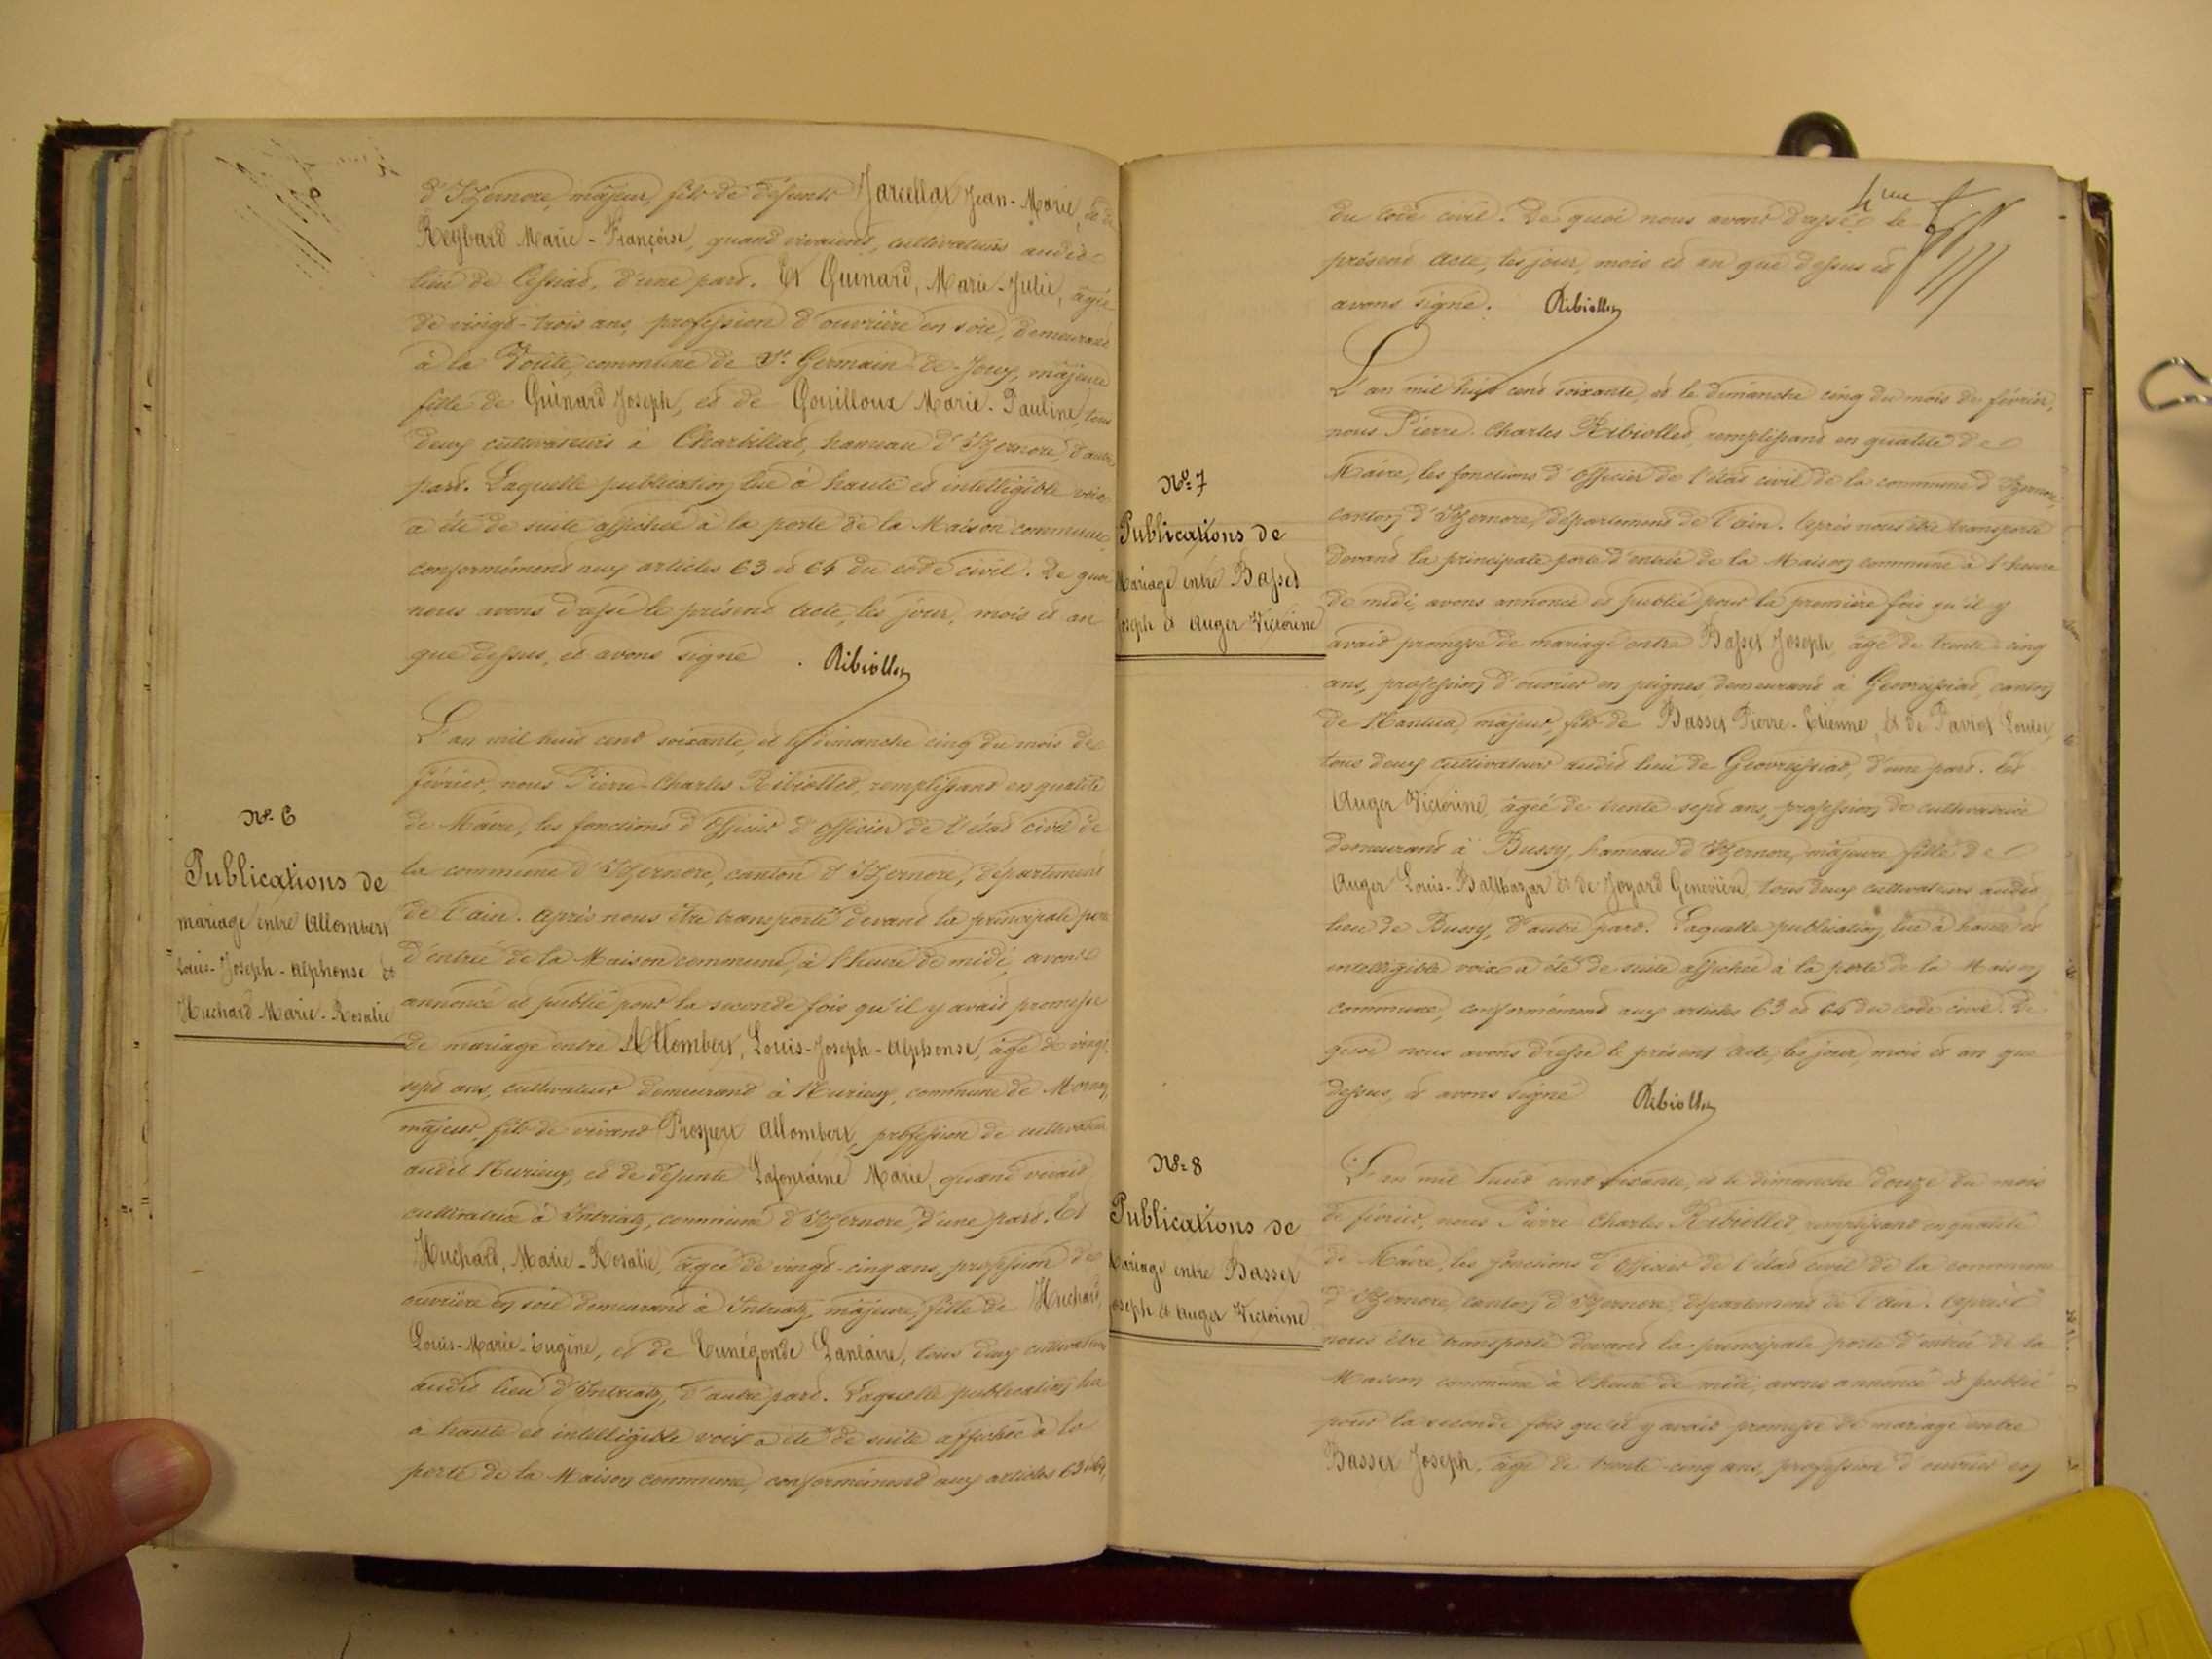 d'Izernore, majeur, fils de défunts Jarcellat Jean-Marie, et de
Reybard Marie-Françoise, quand vivaient, cultivateurs audit
lieu de Cessiat, d'une part. Et Guinard, Marie-Julie, âgée
de vingt-trois ans, profession d'ouvrière en soie, demeurant
à la Voute, commune de St. Germain de Joux, majeure
fille de Guinard Joseph, et de Gouilloux Marie-Pauline, tous
deux cultivateurs à Charbillat, hameau d'Izernore, d'autre
part. Laquelle publication lue à haute et intelligible voix
a été de suite affichée à la porte de la Maison commune,
conformément aux articles 63 et 64 du code civil. De quoi
nous avons dressé le présent acte, les jour, mois et an
que dessus, et avons signé. Ribiollet
N°. 6
Publications de
mariage entre Allombert
Louis-Joseph-Alphonse et
Huchard Marie-Rosalie
L'an mil huit cent soixante, et le dimanche cinq du mois de
février, nous Pierre-Charles Ribiollet, remplissant en qualité
de Maire, les fonctions d'officier d'officier de l'état civil de
la commune d'Izernore, canton d'Izernore, département
de l'ain. Après nous être transporté devant la principale porte
d'entrée de la Maison commune, à l'heure de midi, avons
annoncé et publié pour la seconde fois qu'il y avait promesse
de mariage entre Allombert, Louis-Joseph-Alphonse, âgé de vingt
sept ans, cultivateur demeurant à Nurieux, commune de Mornay,
majeur, fils de vivant Prospert Allombert, profession de cultivateur
audit Nurieux, et de défunte Lafontaine Marie, quand vivait
cultivatrice à Intriatz, commune d'Izernore, d'une part. Et
Huchard, Marie-Rosalie, âgée de vingt-cinq ans, profession de
ouvrière en soie demeurant à Intriatz, majeure, fille de Huchard,
Louis-Marie-Eugène, et de Cunégonde Lanlaire, tous deux cultivateurs
audit lieu d'Intriatz, d'autre part. Laquelle publication lue
à haute et intelligible voix a été de suite affichée à la
porte de la Maison commune, conformément aux articles 63 et 64,
du code civil. De quoi nous avons dressé le
présent acte, les jour, mois et an que dessus et
avons signé. Ribiollet
N°. 7
Publications de
Mariage entre Basset
Joseph et Auger Victorine
L'an mil huit cent soixante, et le dimanche cinq du mois de février,
nous Pierre-Charles Ribiollet, remplissant en qualité de
Maire, les fonctions d'officier de l'état civil de la commune d'Izernore,
canton d'Izernore, département de l'ain. Après nous être transporté
devant la principale porte d'entrée de la Maison commune à l'heure
de midi, avons annoncé et publié pour la première fois qu'il y
avait promesse de mariage entre Basset Joseph, âgé de trente-cinq
ans, profession d'ouvrier en peignes demeurant à Géovreissiat, canton
de Nantua, majeur, fils de Basset Pierre-Etienne, et de Paviot Louise,
tous deux cultivateurs audit lieu de Géovreissiat, d'une part. Et
Auger Victorine, âgée de trente-sept ans, profession de cultivatrice
demeurant à Bussy, hameau d'Izernore, majeure, fille de
Auger Louis-Balthazar et de Joyard Geneviève, tous deux cultivateurs audit
lieu de Bussy, d'autre part. Laquelle publication, lue à haute et
intelligible voix a été de suite affichée à la porte de la Maison
commune, conformément aux articles 63 et 64 du code civil. De
quoi nous avons dressé le présent acte, les jour, mois et an que
dessus, et avons signé Ribiollet
N°. 8
Publications de
Mariage entre Basset
Joseph et Auger Victorine
L'an mil huit cent soixante, et le dimanche douze du mois
de février, nous Pierre-Charles Ribiollet, remplissant en qualité
de Maire, les fonctions d'officier de l'état civil de la commune
d'Izernore, canton d'Izernore, département de l'ain. Après
nous être transporté devant la principale porte d'entrée de la
Maison commune à l'heure de midi, avons annoncé et publié
pour la seconde fois qu'il y avait promesse de mariage entre
Basset Joseph, âgé de trente-cinq ans, profession d'ouvrier en